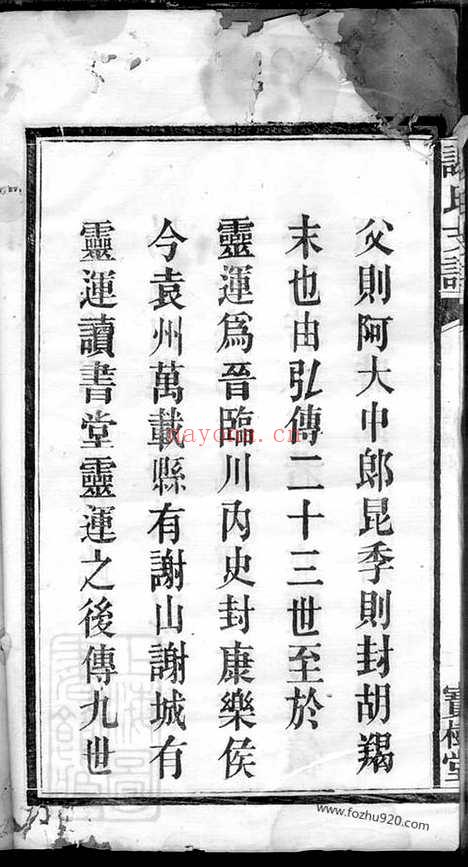 父則阿大中郎昆季則封胡羯
末也由弘傳二十三世至於
靈運為晉臨川內史封康樂侯
今袁州萬載縣有謝山謝城有
靈運讀書堂靈運之後傳九世
謝氏支譜
寶樹堂
nayouo.cn
www.fozhu920.com